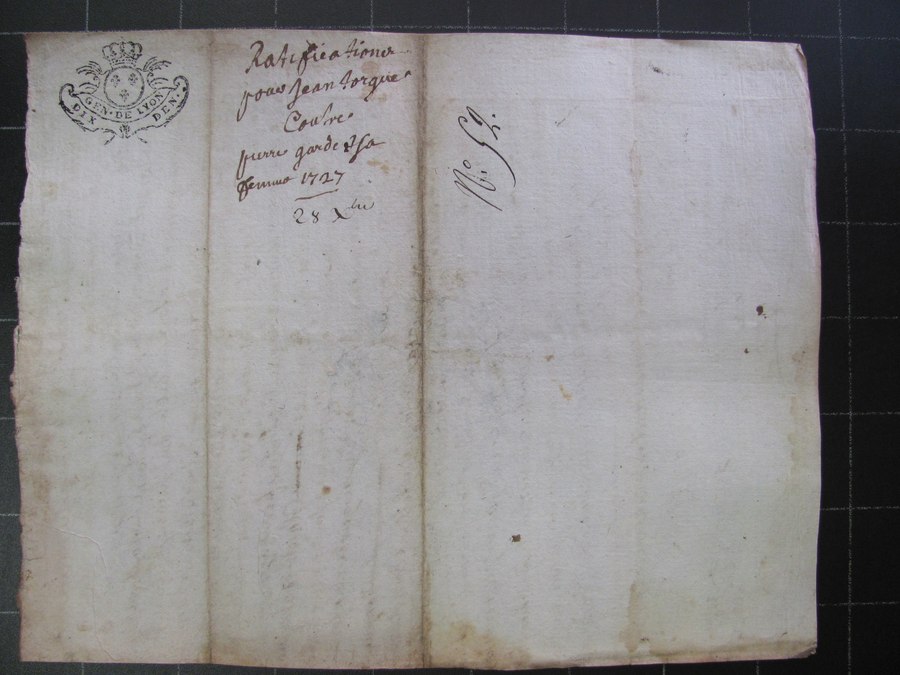 GEN. DE LYON
DIX DEN.
Ratification
pour Jean torgue
Contre
pierre garde & sa
femme 1727
28 Xbre
No. 52.